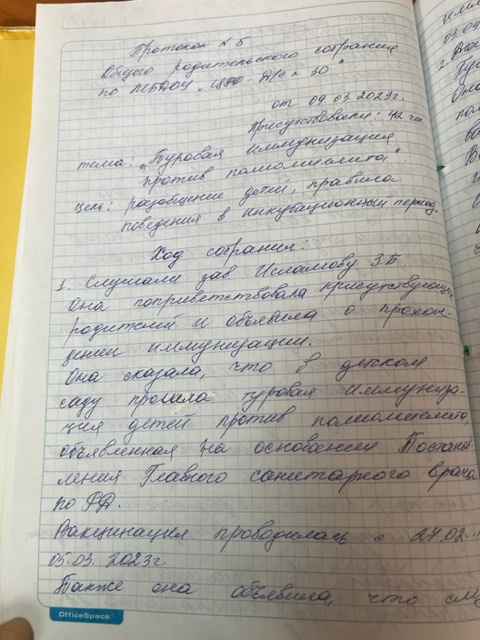 Протокол № 5
Общего родительского собрания
по МБДОУ "ЦРР-Д/с № 30"
от 09.03.2023г.
Присутствовали: 42 чел
тема: "Туровая иммунизация
против полиомиелита"
цель: разобщение детей, правила
поведения в инкубационный период.
Ход собрания:
1. Слушали зав. Исламову З.Б.
Она поприветствовала присутствующих
родителей и объявила о прохож-
дении иммунизации.
Она сказала, что в детском
саду прошла туровая иммуниза-
ция детей против полиомиелита,
объявленная на основании Постанов
ления Главного санитарного врача
по РД.
Вакцинация проводилась с 27.02.
05.03.2023г.
Также она объявила, что
OfficeSpace